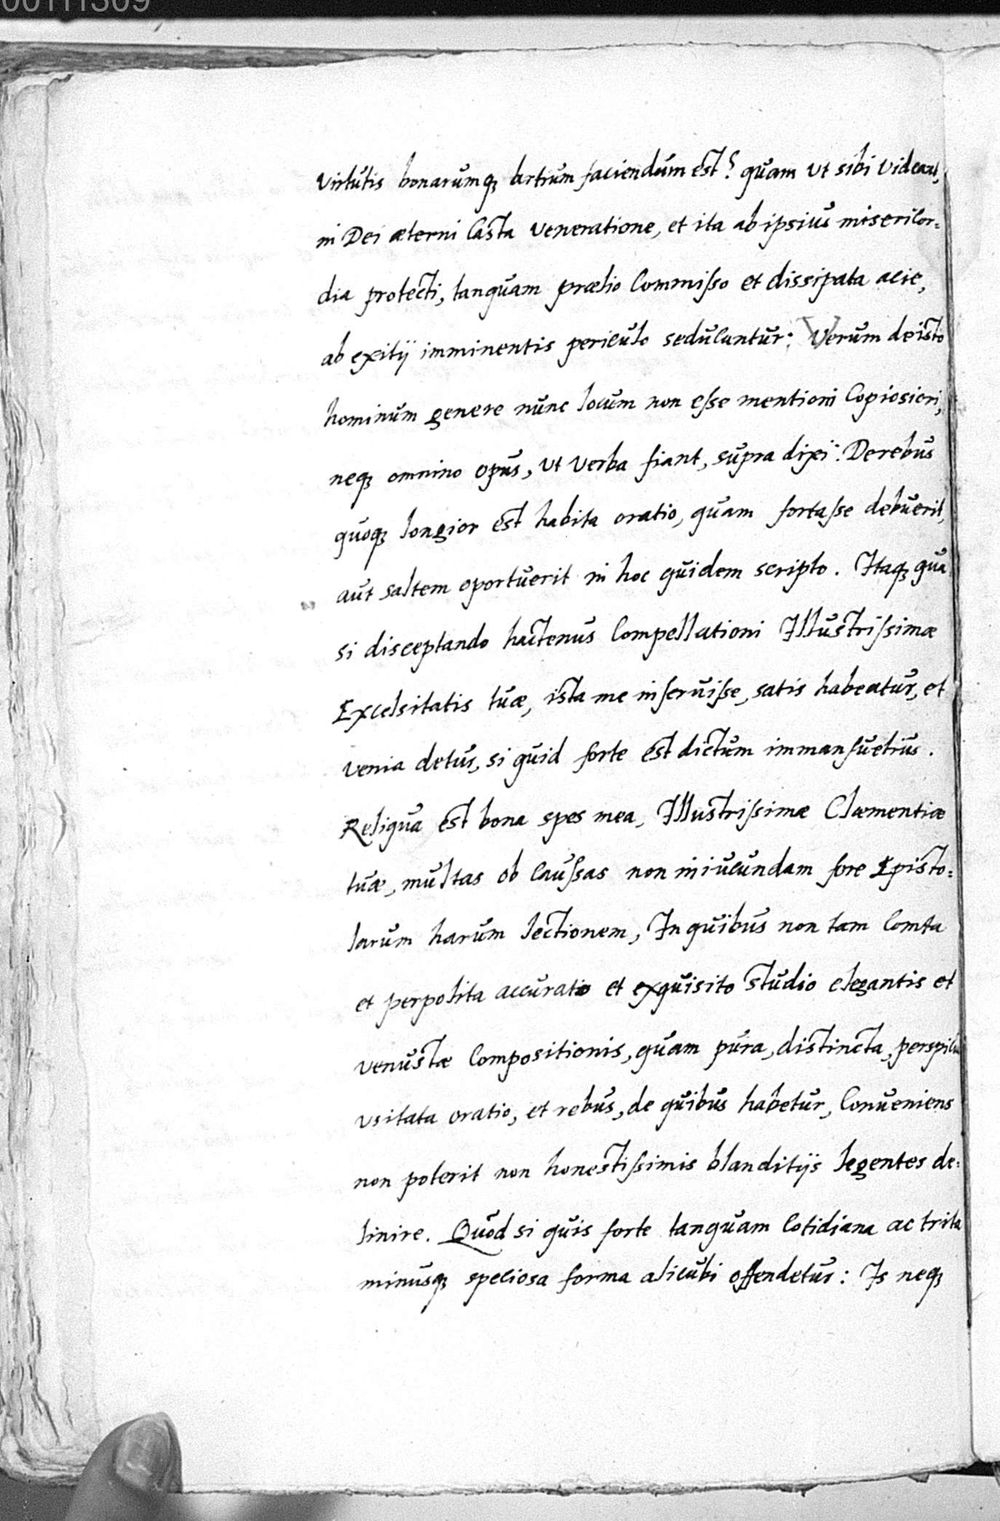 00111309
virtutis bonarumq; artium faciendum est? quam ut sibi videant,
in Dei æterni casta veneratione, et ita ab ipsius misericor=
dia protecti, tanquam prælio commisso et dissipata acie,
ab exitij imminentis periculo seducantur: Verum de isto
hominum genere nunc locum non esse mentioni copiosiori,
neq; omnino opus, ut verba fiant, supra dixi: De rebus
quoq; longior est habita oratio, quam fortasse debuerit,
aut saltem oportuerit in hoc quidem scripto. Itaq; qua
si disceptando hactenus compellationi Illustrissimæ
Excelsitatis tuæ, ista me inservisse, satis habeatur, et
venia detur, si quid forte est dictum immansuetius.
Reliqua est bona spes mea, Illustrissimæ Clæmentiæ
tuæ, multas ob caussas non iniucundam fore Episto=
larum harum lectionem, In quibus non tam comta
et perpolita accurato et exquisito studio elegantis et
venustæ compositionis, quam pura, distincta, perspicua
usitata oratio, et rebus, de quibus habetur, conueniens
non poterit non honestissimis blanditijs legentes de=
linire. Quod si quis forte tanquam cotidiana ac trita
minusq; speciosa forma alicubi offendetur: Is neq;